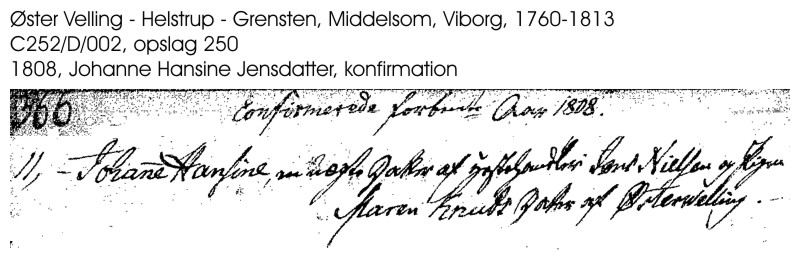 Øster Velling - Helstrup - Grensten, Middelsom, Viborg, 1760-1813
C252/D/002, opslag 250
1808, Johanne Hansine Jensdatter, konfirmation
366
Confirmerede forbemte Aar 1808.
11, - Johanne Hansine, en uægte Daater af Hestehandler Jens Nielsen og Pigen
Maren Knuds Daater af Østervelling.